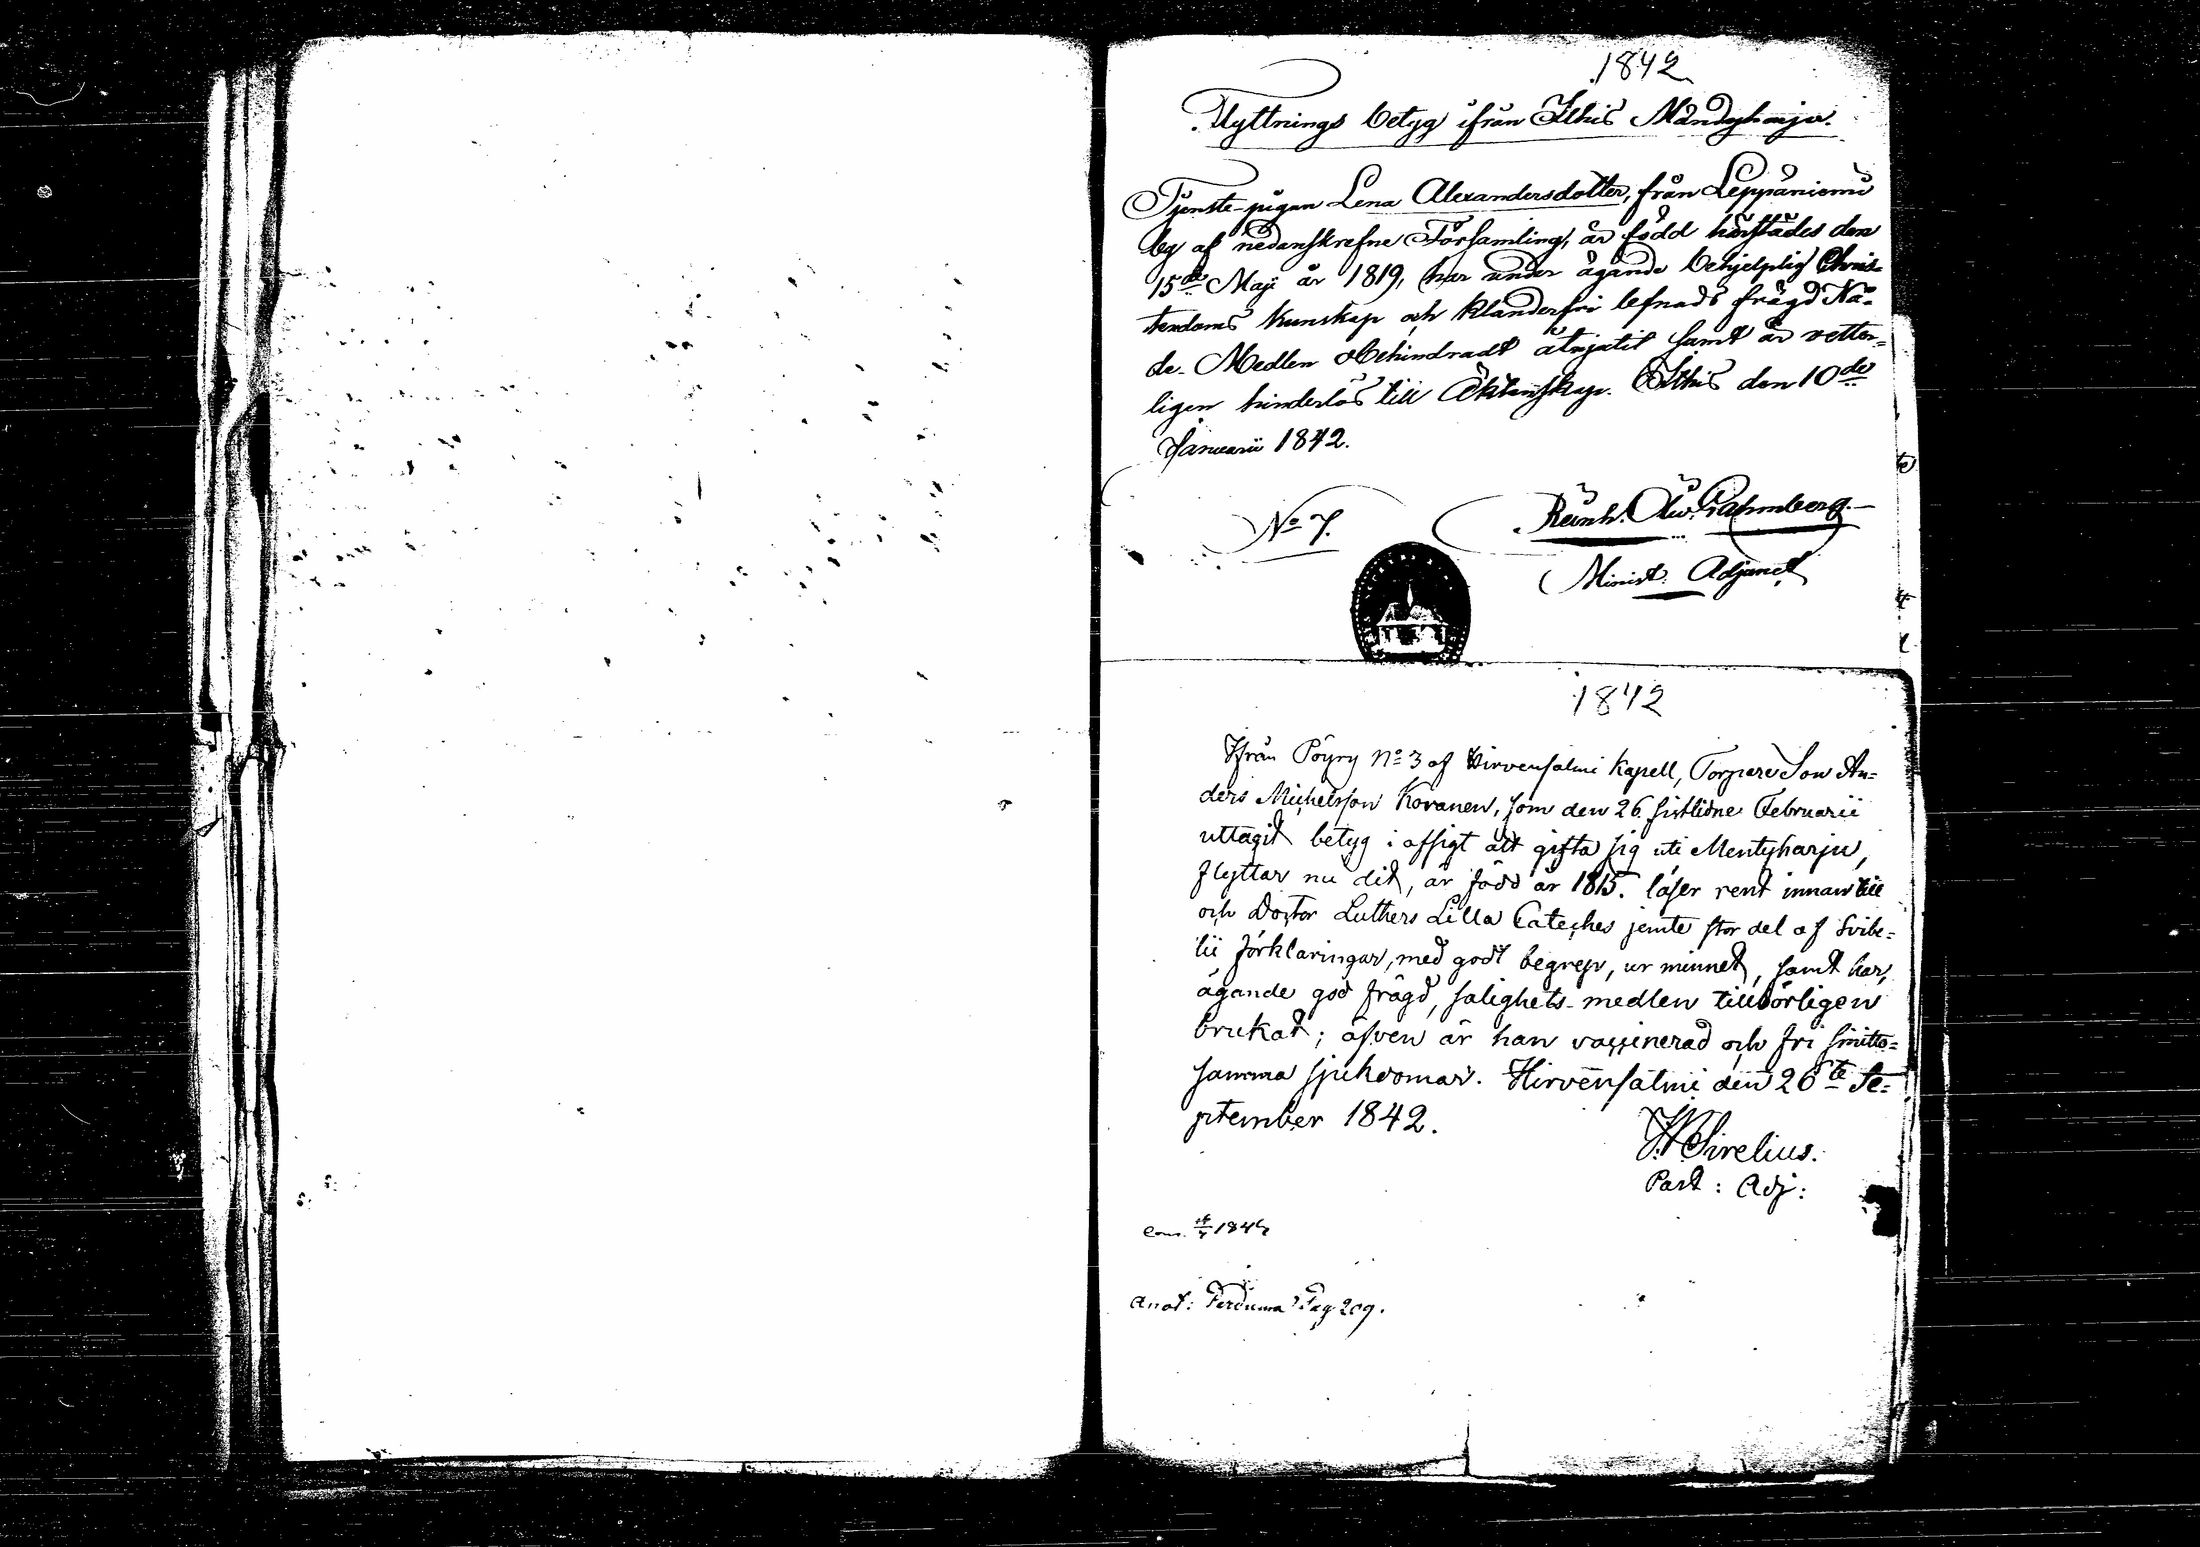 1842
Flyttnings betyg ifrån Itthis Mändyharju.
Tjenste-pigan Lena Alexandersdotter, från Leppäniemi
by af nedanskrefne Församling, är född härstädes den
15de Maji år 1819, har under ägande behjelplig Chris-
tendoms kunskap och klanderfri lefnads frägd Nå-
de-Medlen obehindradt åtnjutit samt är vetter-
ligen hinderlös till Äktenskap. Itthis den 10de
Januarii 1842.
No 7.
Reinh. Alw. Grahmberg.
Minist. Adjunct
1842
Ifrån Pöyry No 3 af Hirvensalmi Kapell, Torpare Son An=
ders Michelsson Kovanen, som den 26 sistlidne Februarii
uttagit betyg i afsigt att gifta sig uti Mentyharju,
flyttar nu dit, är född år 1815. läser rent innantill
och Doctor Luthers Lilla Cateches jemte stor del af Svibe=
lii förklaringar, med godt begrep, ur minnet, samt har,
ägande god frägd, salighets-medlen tillbörligen
brukat; äfven är han vaccinerad och fri smitto=
samma sjukdomar. Hirvensalmi den 26te Se=
ptember 1842.
Sirelius.
Past: Adj:
Anot: Pag 209.